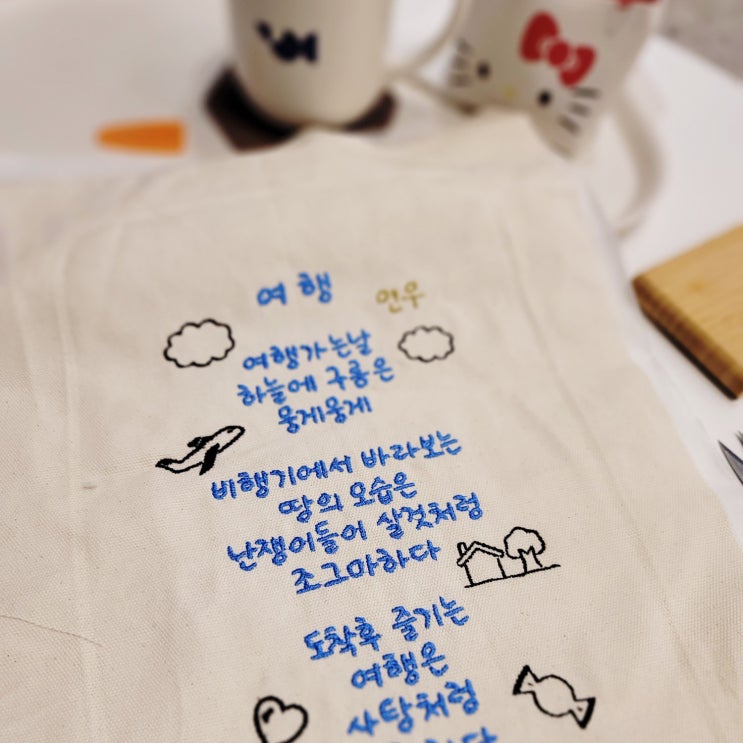 여행
연우
여행가는날
하늘에 구름은
뭉게뭉게
비행기에서 바라보는
땅의 모습은
난쟁이들이 살것처럼
조그마하다
도착후 즐기는
여행은
사탕처럼